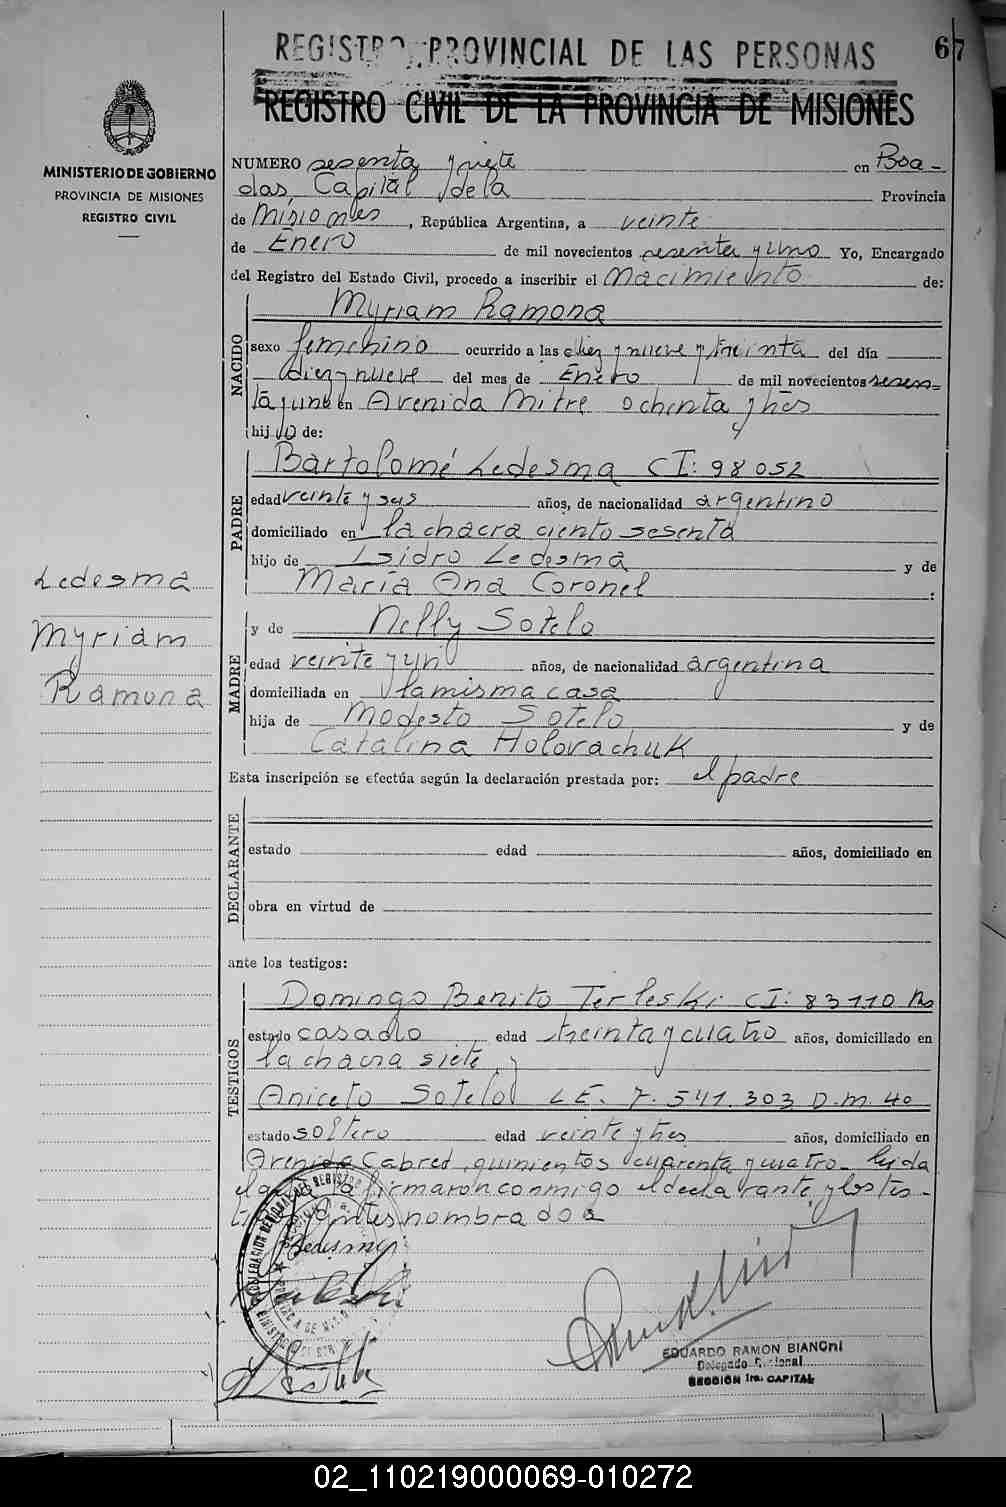 REGISTRO PROVINCIAL DE LAS PERSONAS
67
REGISTRO CIVIL DE LA PROVINCIA DE MISIONES
MINISTERIO DE GOBIERNO
PROVINCIA DE MISIONES
REGISTRO CIVIL
NUMERO sesenta y siete en Posa-
das Capital de la Provincia
de Misiones, República Argentina, a veinte
de Enero de mil novecientos sesenta y uno Yo, Encargado
del Registro del Estado Civil, procedo a inscribir el Nacimiento de:
NACIDO
Myriam Ramona
sexo femenino ocurrido a las diez y nueve y treinta del día
diez y nueve del mes de Enero de mil novecientos sesen=
ta y uno en Avenida Mitre ochenta y tres
hija de:
PADRE
Bartolomé Ledesma CI: 98052
edad veinte y seis años, de nacionalidad argentino
domiciliado en la chacra ciento sesenta
hijo de Isidro Ledesma y de
Maria Ana Coronel :
Ledesma
Myriam
Ramona
MADRE
y de Nelly Sotelo
edad veinte y un años, de nacionalidad argentina
domiciliada en la misma casa
hija de Modesto Sotelo y de
Catalina Holovachuk
Esta inscripción se efectúa según la declaración prestada por: el padre
DECLARANTE
estado edad años, domiciliado en
obra en virtud de
ante los testigos:
TESTIGOS
Domingo Benito Terleski CI: 83110 Ms
estado casado edad treinta y cuatro años, domiciliado en
la chacra siete y
Aniceto Sotelo LE. 7.541.303 D.M. 40
estado soltero edad veinte y tres años, domiciliado en
Avenida Cabred quinientos cuarenta y cuatro- leida
el acta la firmaron conmigo el declarante y los tes-
tigos antes nombrados
Ledesma
EDUARDO RAMON BIANCHI
Delegado Regional
SECCIÓN 1ra. CAPITAL
02_110219000069-010272